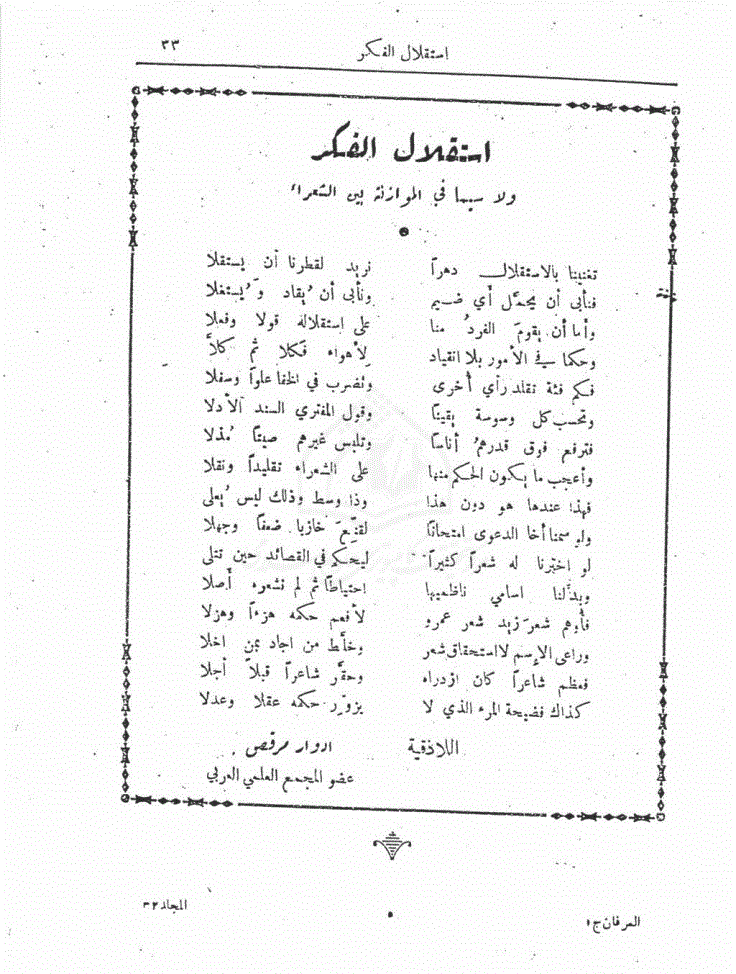 استقلال الفكر ٣٣
استقلال الفكر
ولا سيما في الموازنة بين الشعراء
تغنينا بالاستقلال دهراً نريد لقطرنا أن يستقلا
فنأبى أن يحمَّل أي ضيم ونأبى أن يُقاد وَيُستغلا
وأما أن يقومَ الفردُ منا على استقلاله قولا وفعلا
وحكما في الأمور بلا انقياد لأهواء فكلا ثم كلاَّ
فكم فئة تقلد رأي أخرى وتضرب في الخفا علواً وسفلا
وتحسب كل وسوسة يقيناً وقول المفتري السند الأدلا
فترفع فوق قدرهمُ أناساً وتلبس غيرهم صيتاً مُذلا
وأعجب ما يكون الحكم منها على الشعراء تقليداً ونقلا
فهذا عندها هو دون هذا وذا وسط وذلك ليس يُعلى
ولو سمنا أخا الدعوى امتحاناً لقنِّع خازيا ضعفاً وجهلا
لو اخترنا له شعراً كثيراً ليحكم في القصائد حين تتلى
وبدَّلنا اسامي ناظميها احتياطاً ثم لم نشعره أصلا
فأوهم شعرَ زيد شعر عمرو لأفعم حكمه هزءاً وهزلا
وراعى الإسم لا استحقاق شعر وخلَّط من اجاد بمن اخلا
فعظم شاعراً كان ازدراه وحقَّر شاعراً قبلاً أجلا
كذاك فضيحة المرء الذي لا يزوِّر حكمه عقلا وعدلا
اللاذقية ادوار مرقص
عضو المجمع العلمي العربي
العرفان ج١ المجلد ٣٢